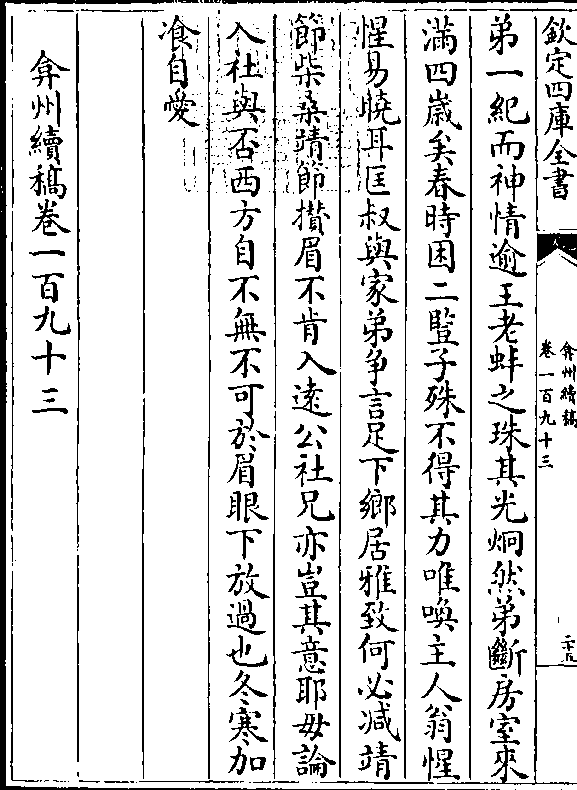 欽定四庫全書
弇州續稿
卷一百九十三
二十五
弟一紀而神情逾王老蚌之珠其光炯然弟斷房室來
滿四歲矣春時困二豎子殊不得其力唯喚主人翁惺
惺易曉耳匡叔與家弟爭言足下鄉居雅致何必减靖
節柴桑靖節攅眉不肯入遠公社兄亦豈其意耶毋論
入社與否西方自不無不可於眉眼下放過也冬寒加
飡自愛
弇州續稿卷一百九十三